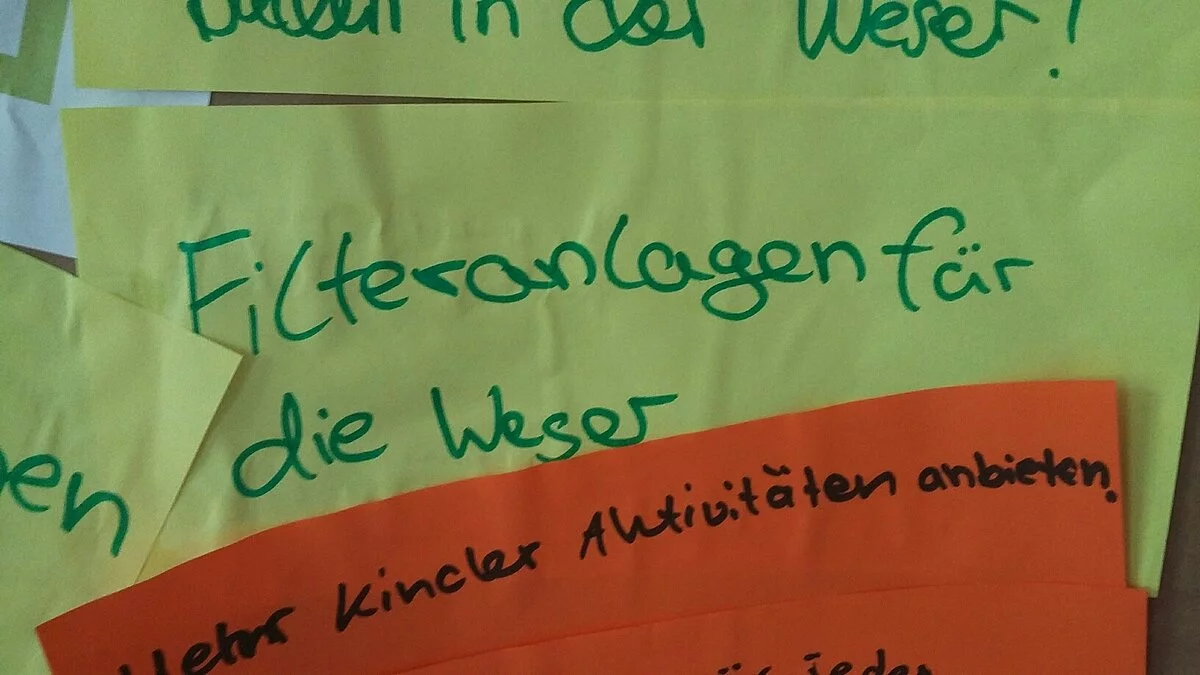 in der Weser!
Filteranlagen fär
die Weser
en
Mehr Kinder Aktivitäten anbieten.
jeder